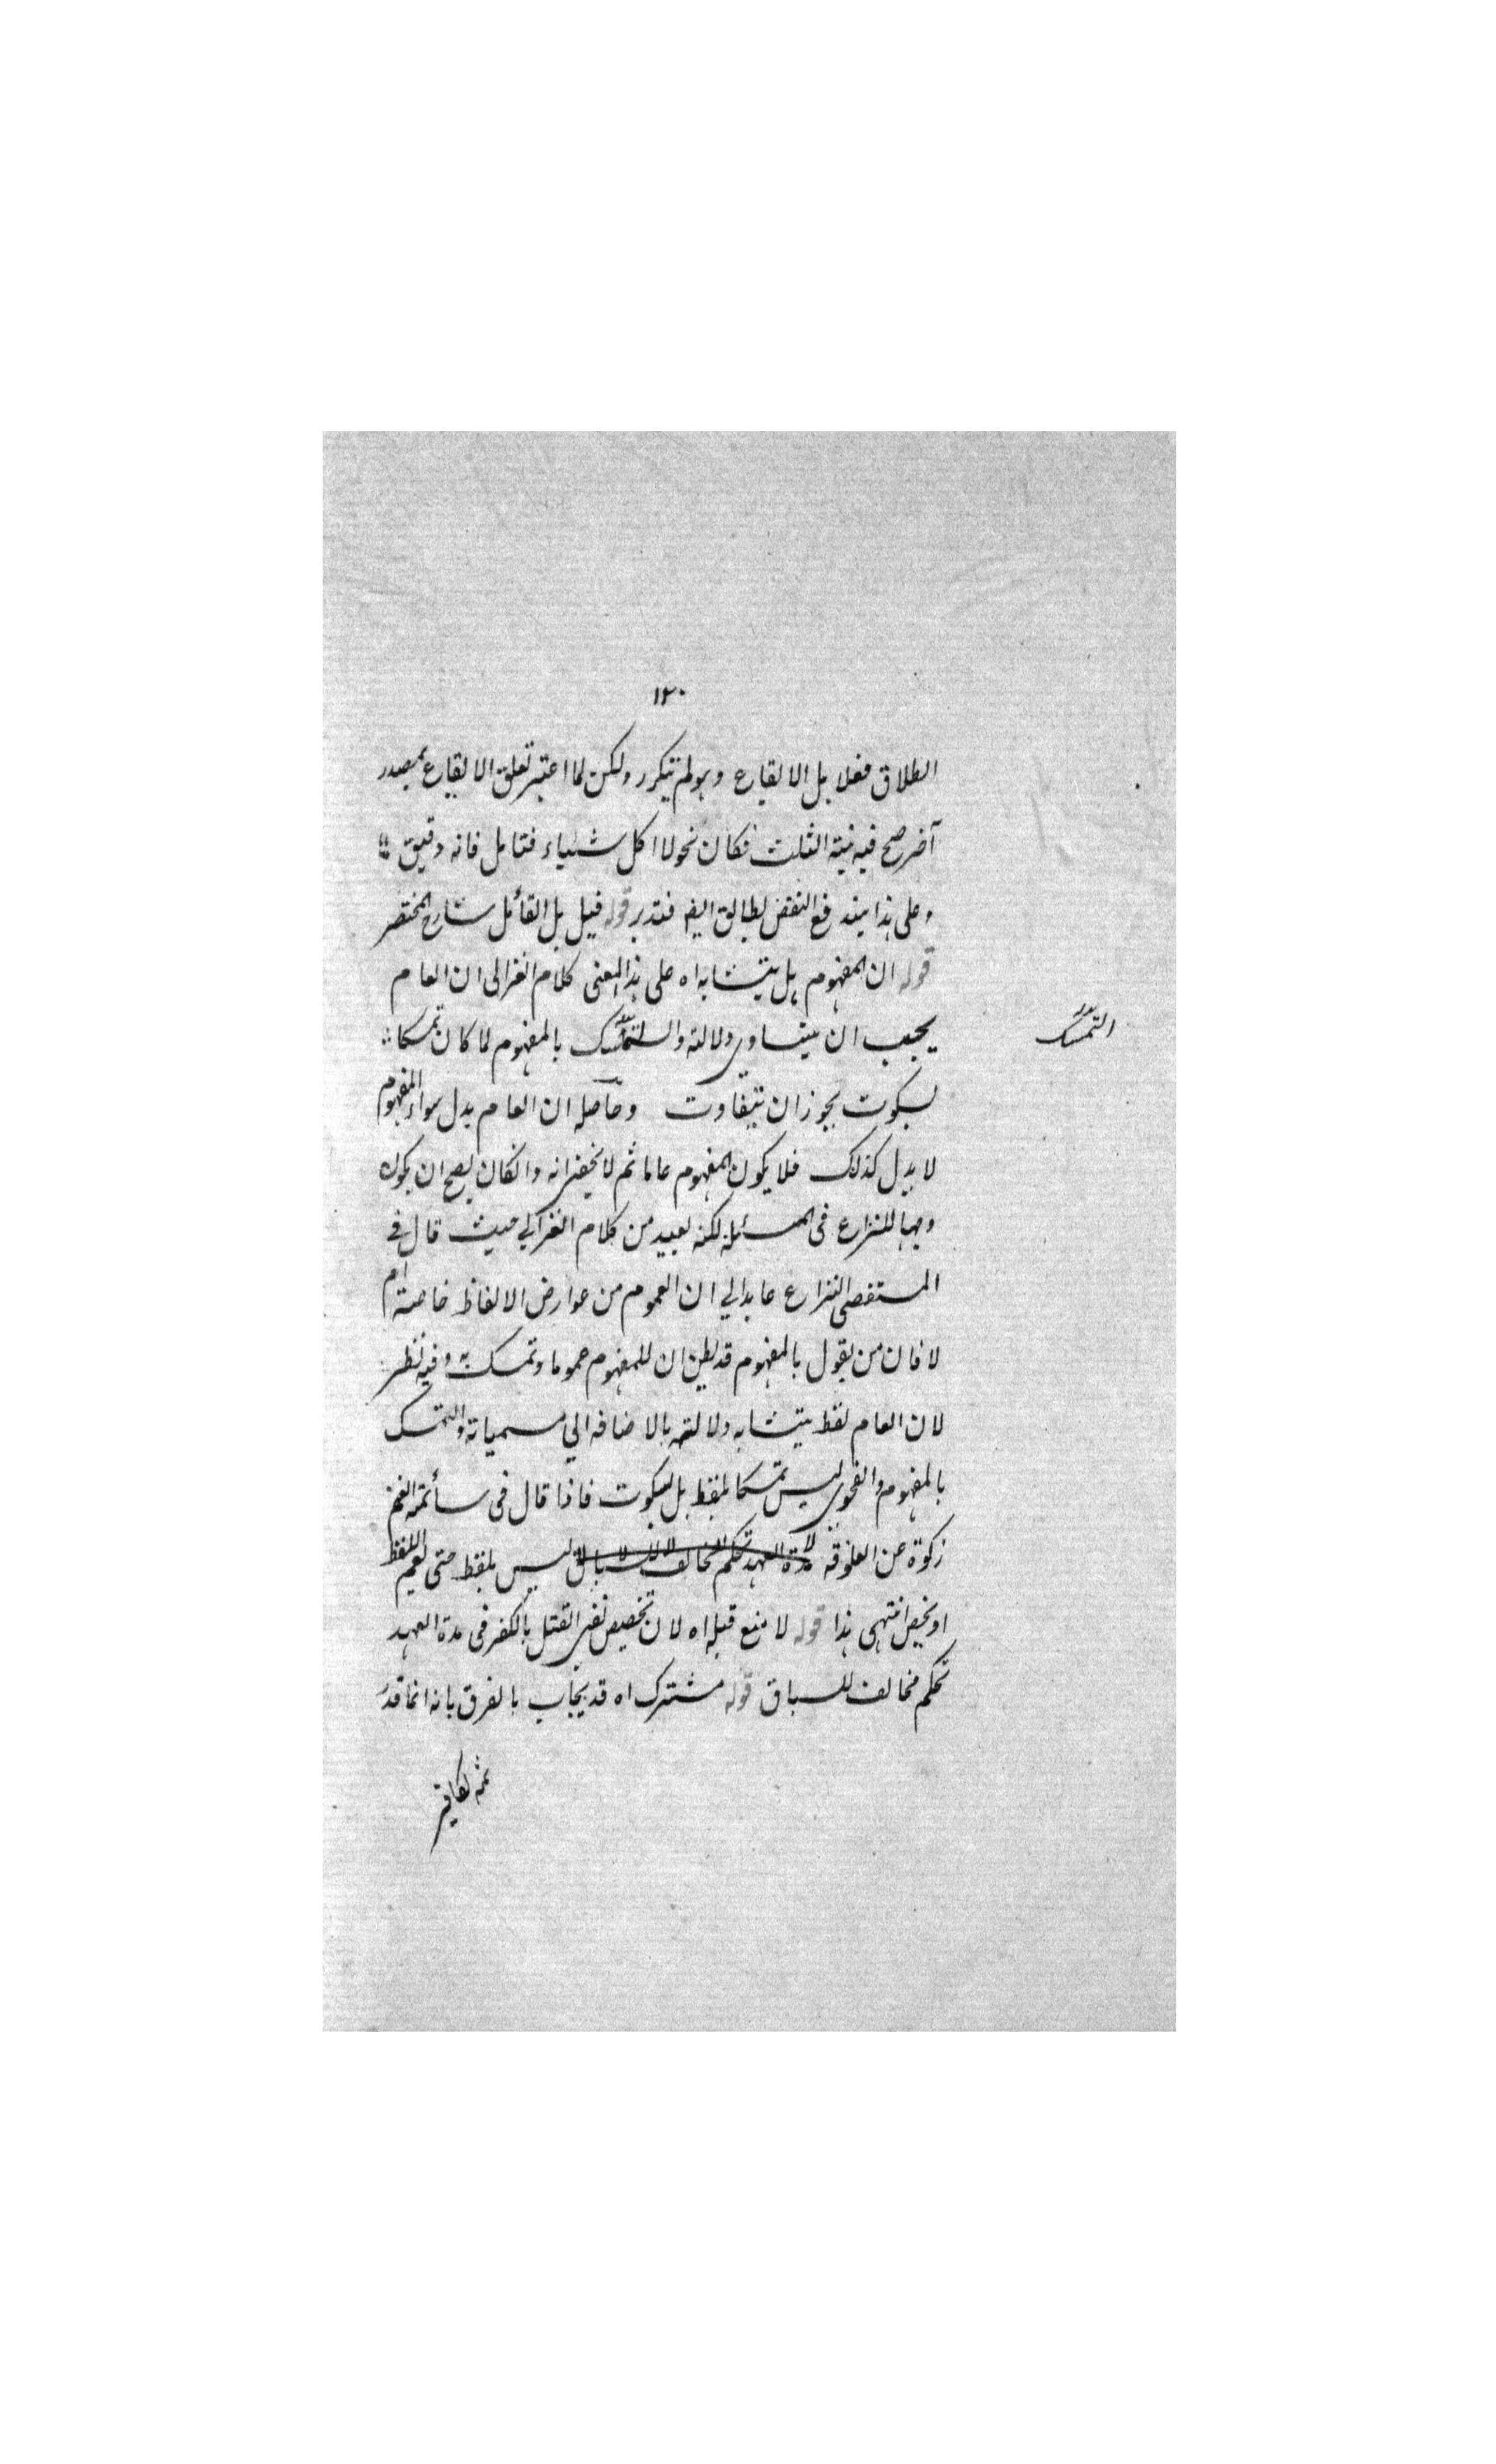 ١٢٠
الطلاق فعلا بل الايقاع وهو لم يتكرر ولكن لما اعتبر تعلق الايقاع بمصدر
آخر صح فيه نية الثلث فكان نحو لا اكل شياء فتامل فانه دقيق
وعلى هذا يندفع النقض بطالق ايضا فتدبر قوله قيل بل القائل شارح المختصر
قوله ان المفهوم هل يتشابه اه على هذا المعنى كلام الغزالى ان العام
يجب ان يتساوى دلالته والتمسك بالمفهوم لما كان تمسكا
التمسك
بسكوت يجوز ان يتفاوت وحاصله ان العام يدل سواء والمفهوم
لا يدل كذلك فلا يكون المفهوم عاما ثم لا يخفى انه وانكان يصح ان يكون
وجها للنزاع فى المسئلة لكنه بعيد من كلام الغزالي حيث قال فے
المستصفى النزاع عايد الي ان العموم من عوارض الالفاظ خاصة ام
لا فان من يقول بالمفهوم قد يظن ان للمفهوم عموما وتمسك به وفيه نظر
لان العام لفظ يتشابه دلالته بالاضافه الي مسمياته والتمسك
بالمفهوم والفحوى ليس تمسكا بلفظ بل بسكوت فاذا قال فى سائمة الغنم
زكوة عن العلوفة ليس بلفظ حتى يعم اللفظ
او يخص انتهى هذا قوله لا منع قبله اه لان تخصيص نفى القتل بالكفر فى مدة العهد
تحكم مخالف للسباق قوله مشترك اه قد يجاب بالفرق بانه انما قدر
ثمه بكافر